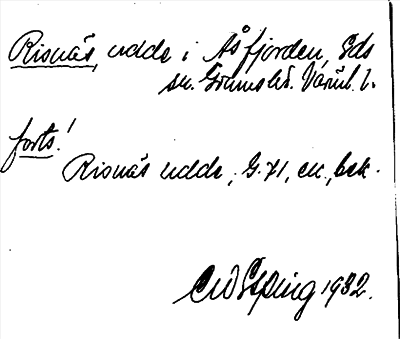 Risnäs, udde i Åsfjorden, Eds
sn. Grumsbd. Värml. l.
forts!
Risnäs udde, G. 71, ek., bek.
1932.